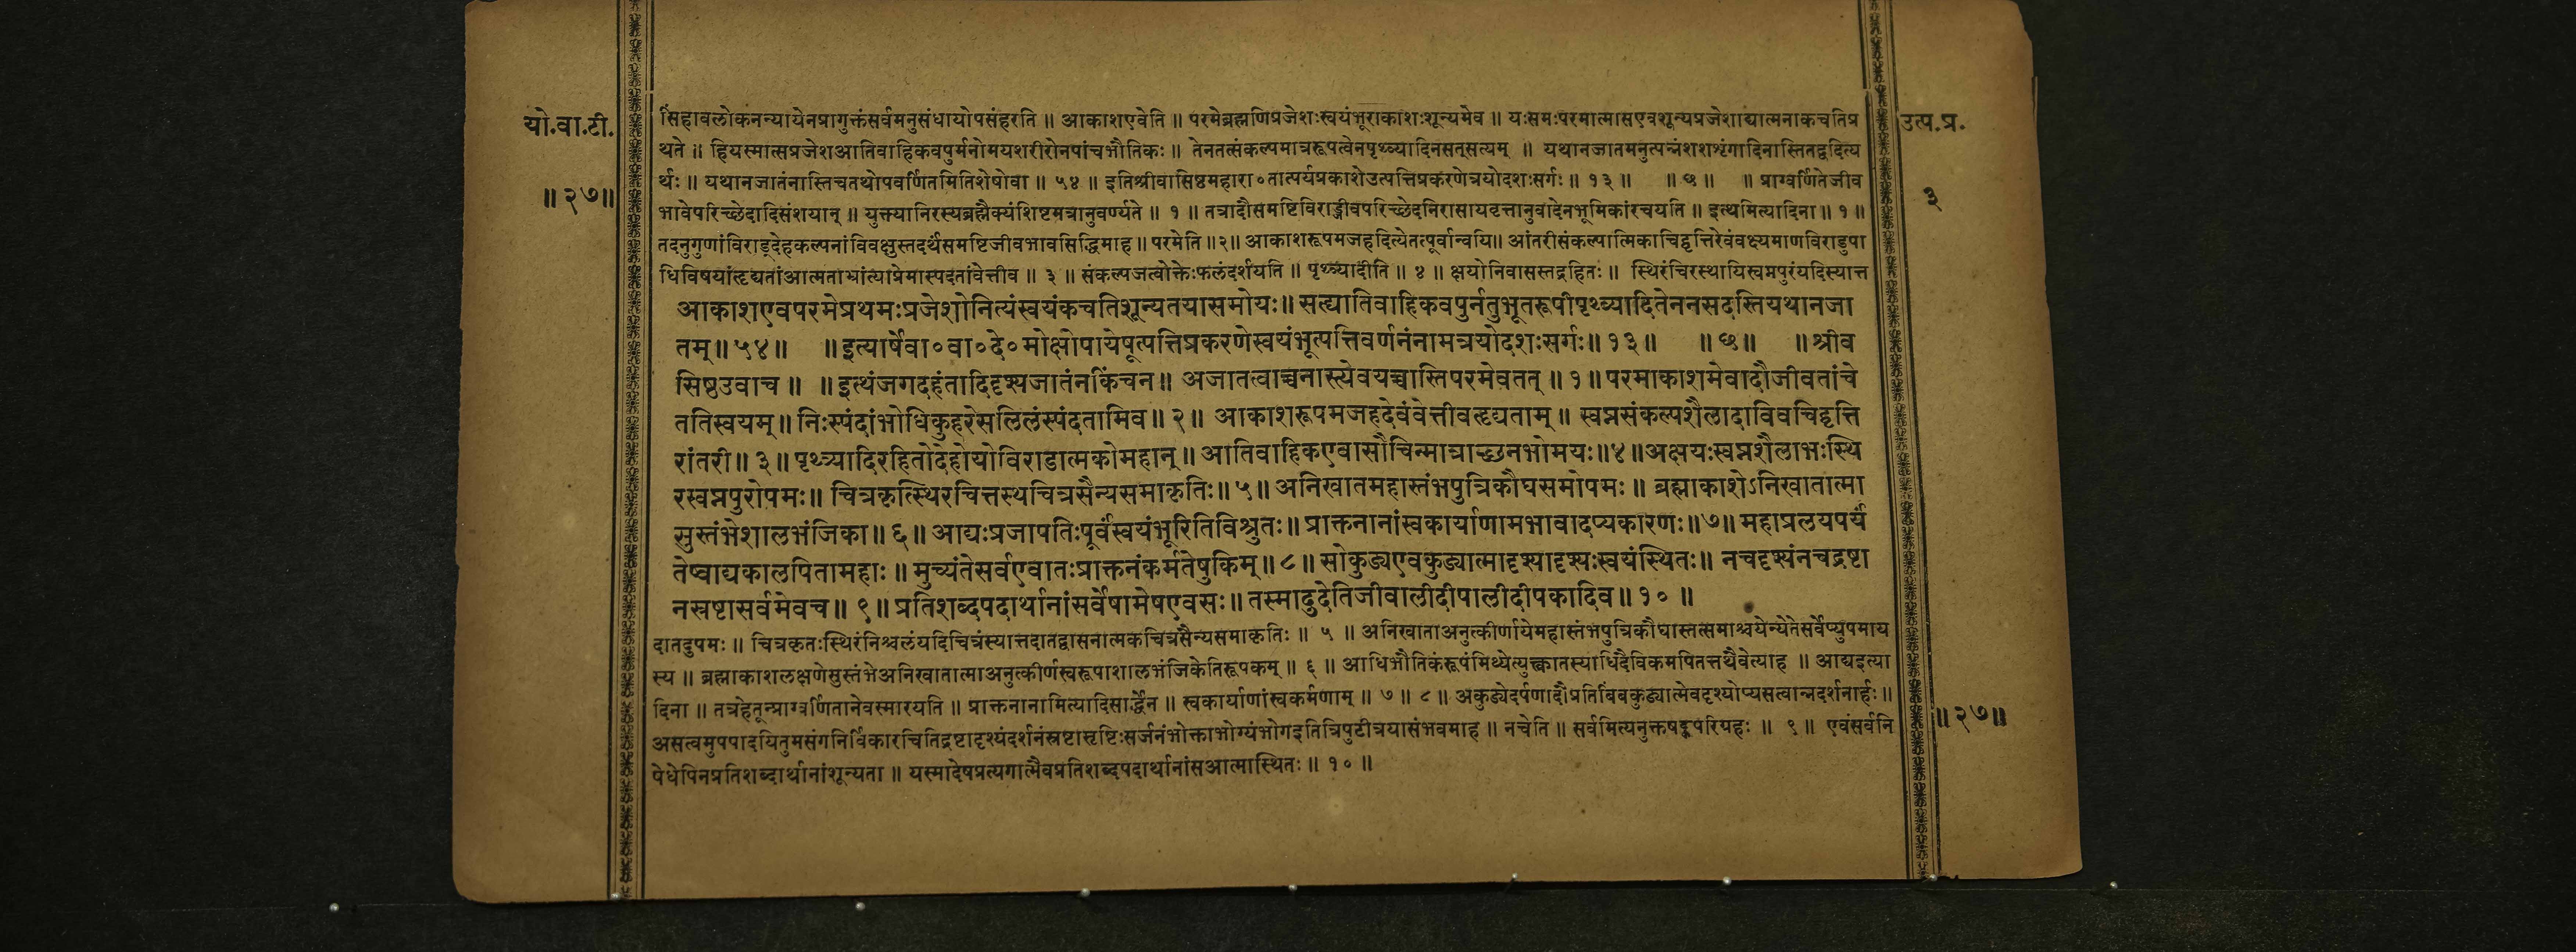 यो.वा.टी.
॥२७॥
सिंहावलोकनन्यायेनप्रागुक्तंसर्वमनुसंधायोपसंहरति ॥ आकाशएवेति ॥ परमेब्रह्मणिप्रजेशःस्वयंभूराकाशःशून्यमेव ॥ यःसमःपरमात्मासएवशून्यप्रजेशाद्यात्मनाकचतिप्र
थते ॥ हियस्मात्सप्रजेशआतिवाहिकवपुर्मनोमयशरीरोनपांचभौतिकः ॥ तेनतत्संकल्पमात्ररूपत्वेनपृथ्व्यादिनसत्सत्यम् ॥ यथानजातमनुत्पन्नंशशशृंगादिनास्तितद्वदित्य
र्थः ॥ यथानजातंनास्तिचतथोपवर्णितमितिशेषोवा ॥ ५४ ॥ इतिश्रीवासिष्ठमहारा०तात्पर्यप्रकाशेउत्पत्तिप्रकरणेत्रयोदशःसर्गः ॥ १३ ॥ ॥ छ ॥ ॥ प्राग्वर्णितेजीव
भावेपरिच्छेदादिसंशयान् ॥ युक्त्यानिरस्यब्रह्मैक्यंशिष्टमत्रानुवर्ण्यते ॥ १ ॥ तत्रादौसमष्टिविराड्जीवपरिच्छेदनिरासायवृत्तानुवादेनभूमिकांरचयति ॥ इत्थमित्यादिना ॥ १ ॥
तदनुगुणांविराड्देहकल्पनांविवक्षुस्तदर्थंसमष्टिजीवभावसिद्धिमाह ॥ परमेति ॥२॥ आकाशरूपमजहदित्येतत्पूर्वान्वयि॥ आंतरीसंकल्पात्मिकाचिद्वृत्तिरेवंवक्ष्यमाणविराडुपा
धिविषयांतृद्यतांआत्मताभ्रांत्याप्रेमास्पदतांवेत्तीव ॥ ३ ॥ संकल्पजत्वोक्तेःफलंदर्शयति ॥ पृथ्व्यादीति ॥ ४ ॥ क्षयोनिवासस्तद्रहितः ॥ स्थिरंचिरस्थायिस्वप्नपुरंयदिस्यात्त
आकाशएवपरमेप्रथमःप्रजेशोनित्यंस्वयंकचतिशून्यतयासमोयः॥ सत्द्यातिवाहिकवपुर्नतुभूतरूपीपृथ्व्यादितेननसदस्तियथानजा
तम्॥५४॥ ॥इत्यार्षेवा०वा०दे०मोक्षोपायेपूत्पत्तिप्रकरणेस्वयंभूत्पत्तिवर्णनंनामत्रयोदशःसर्गः॥१३॥ ॥छ॥ ॥श्रीव
सिष्ठउवाच ॥ ॥इत्थंजगदहंतादिदृश्यजातंनकिंचन॥ अजातत्वाच्चनास्त्येवयच्चास्तिपरमेवतत् ॥१॥परमाकाशमेवादौजीवतांचे
ततिस्वयम्॥ निःस्पंदांभोधिकुहरेसलिलंस्पंदतामिव॥ २॥ आकाशरूपमजहदेवंवेत्तीवत्द्दद्यताम्॥ स्वप्नसंकल्पशैलादाविवचिद्वृत्ति
रांतरी॥ ३॥ पृथ्व्यादिरहितोदेहोयोविराडात्मकोमहान्॥ आतिवाहिकएवासौचिन्मात्राच्छनभोमयः॥४॥अक्षयःस्वप्नशैलाभःस्थि
रस्वप्नपुरोपमः॥ चित्रकृत्स्थिरचित्तस्थचित्रसैन्यसमाकृतिः॥५॥ अनिखातमहास्तंभपुत्रिकौघसमोपमः॥ ब्रह्माकाशेऽनिखातात्मा
सुस्तंभेशालभंजिका॥ ६॥ आद्यःप्रजापतिःपूर्वंस्वयंभूरितिविश्रुतः॥ प्राक्तनानांस्वकार्याणामभावादप्यकारणः॥७॥ महाप्रलयपर्यं
तेष्वाद्यकालपितामहाः॥ मुच्यंतेसर्वएवातःप्राक्तनंकर्मतेषुकिम्॥८॥ सोकुड्यएवकुड्यात्मादृश्यादृश्यःस्वयंस्थितः॥ नचदृश्यंनचद्रष्टा
नस्रष्टासर्वमेवच॥ ९॥ प्रतिशब्दपदार्थानांसर्वेषामेषएवसः॥ तस्मादुदेतिजीवालीदीपालीदीपकादिव॥१०॥
दातदुपमः ॥ चित्रकृतःस्थिरंनिश्चलंयदिचित्रंस्यात्तदातद्वासनात्मकचित्रसैन्यसमाकृतिः ॥ ५ ॥ अनिखाताअनुत्कीर्णायेमहास्तंभपुत्रिकौघास्तत्समाश्चयेन्येतेसर्वेप्युपमाय
स्य ॥ ब्रह्माकाशलक्षणेसुस्तंभेअनिखातात्माअनुत्कीर्णस्वरूपाशालभंजिकेतिरूपकम् ॥ ६ ॥ आधिभौतिकंरूपंमिथ्येत्युक्त्वातस्याधिदैविकमपितत्तथैवेत्याह ॥ आद्यइत्या
दिना ॥ तत्रहेतून्प्राग्वर्णितानेवस्मारयति ॥ प्राक्तनानामित्यादिसार्द्धेन ॥ स्वकार्याणांस्वकर्मणाम् ॥ ७ ॥ ८ ॥ अकुड्येदर्पणादौप्रतिबिंबकुड्यात्मेवदृश्योप्यसत्वान्नदर्शनार्हः॥
असत्वमुपपादयितुमसंगनिर्विकारचितिद्रष्टादृश्यंदर्शनंस्रष्टासृष्टिःसर्जनंभोक्ताभोग्यंभोगइतित्रिपुटीत्रयासंभवमाह ॥ नचेति ॥ सर्वमित्यनुक्तषट्कपरिग्रहः ॥ ९ ॥ एवंसर्वनि
षेधेपिनप्रतिशब्दार्थानांशून्यता ॥ यस्मादेषप्रत्यगात्मैवप्रतिशब्दपदार्थानांसआत्मास्थितः ॥ १० ॥
उत्प.प्र.
३
॥२७॥